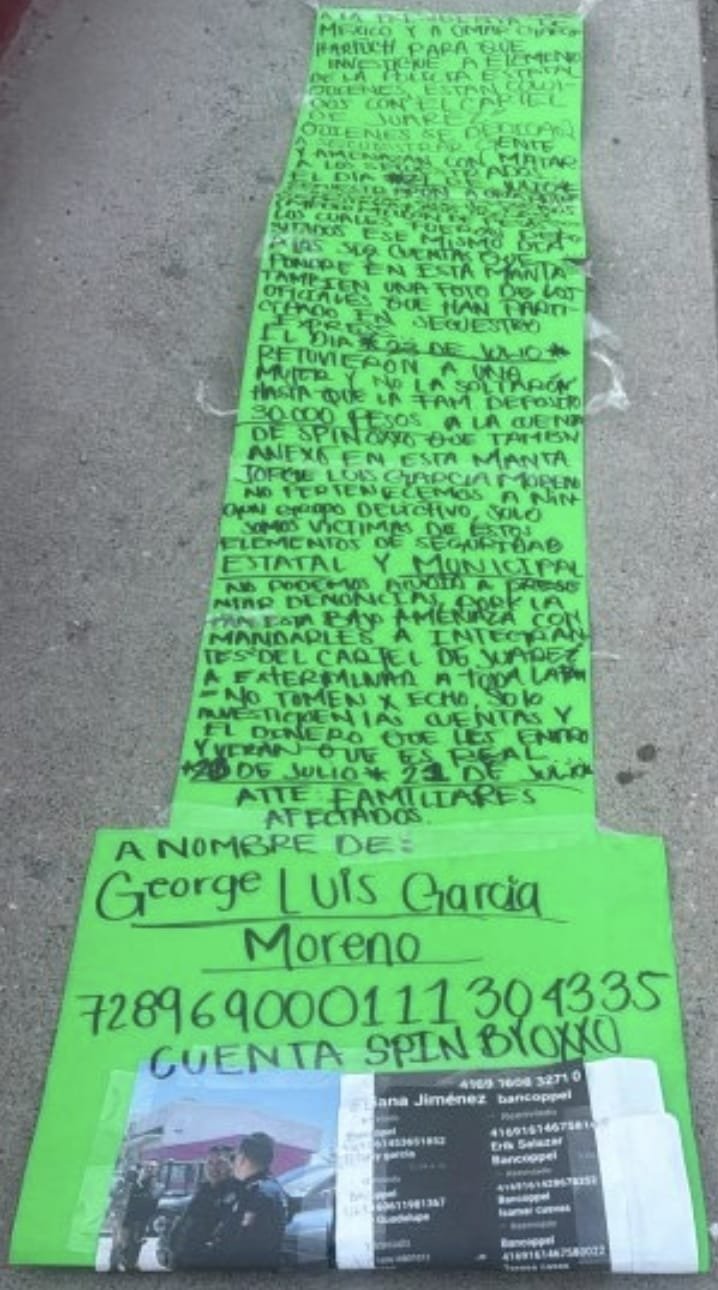 A LA PRESIDENTA DE
MEXICO Y A OMAR GARCIA
HARFUCH PARA QUE
INVESTIGUE A ELEMENTO
DE LA POLICIA ESTATAL
QUIENES ESTAN COLU-
DOS CON EL CARTEL
DE JUAREZ
QUIENES SE DEDICAN
A SECUESTRAR GENTE
Y AMENAZAN CON MATAR
A LOS SECUESTRADOS
EL DIA DE JULIO SE
LOS CUALES FUERON
ESE MISMO DIA
A LAS SUS CUENTAS QUE
PONDRE EN ESTA MANTA
TAMBIEN UNA FOTO DE LOS
OFICIALES QUE HAN PARTI-
CIPADO EN SECUESTRO
EXPRESS
EL DIA * 23 DE JULIO *
RETUVIERON A UNA
MUJER Y NO LA SOLTARON
HASTA QUE LA FAM DEPOSITO
30.000 PESOS A LA CUENTA
DE SPIN OXXO QUE TAMBN
ANEXO EN ESTA MANTA
JORGE LUIS GARCIA MORENO
NO PERTENECEMOS A NIN
GUN GRUPO DELICTIVO, SOLO
SOMOS VICTIMAS DE ESTOS
ELEMENTOS DE SEGURIDAD
ESTATAL Y MUNICIPAL
NO PODEMOS ACUDIR A PRESE
NTAR DENUNCIAS PORK LA
FAM ESTA BAJO AMENAZA CON
MANDARLES A INTEGRAN
TES DEL CARTEL DE JUAREZ
A EXTERMINAR A TODA LA FAM
- NO TOMEN X ECHO, SOLO
INVESTIGUEN LAS CUENTAS Y
EL DINERO QUE LES ENTRO
Y VERAN QUE ES REAL
DE JULIO * 21 DE JULIO
ATTE FAMILIARES
AFECTADOS.
A NOMBRE DE:
George LUIS Garcia
Moreno
728969000111304335
CUENTA SPIN BY OXXO
4169 1608 3271 0
ana Jiménez bancoppel
Reenviado
Erik Salazar
Bancoppel
garcia
Reenviado
Bancoppel
Guadalupe
Reenviado
Bancoppel
4169161467580022